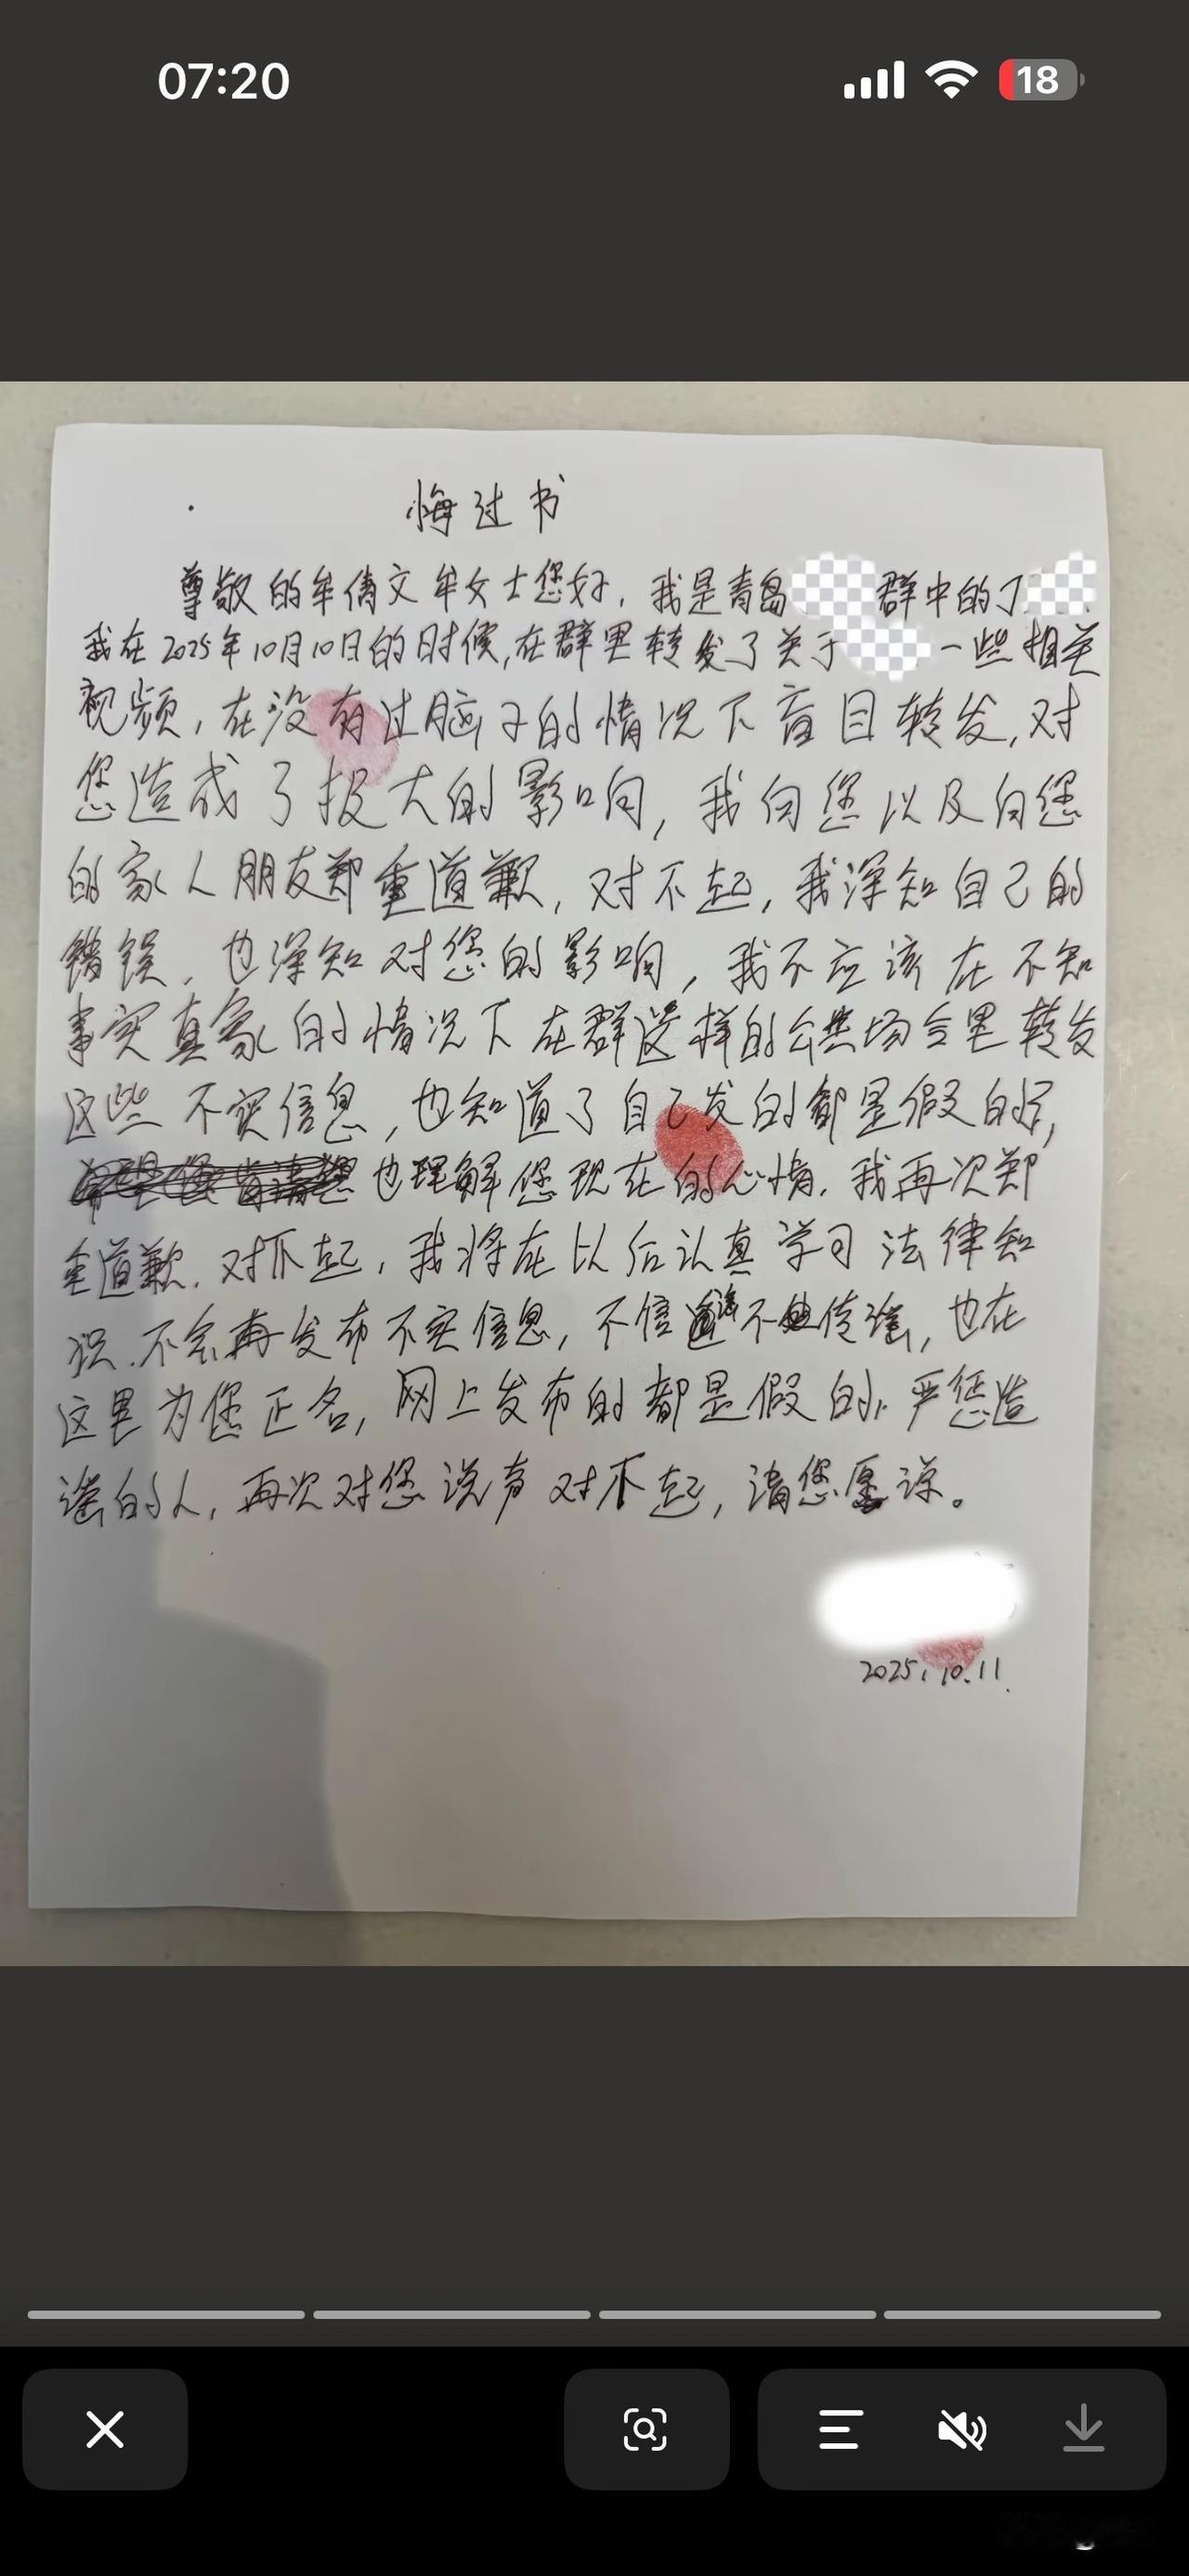 07:20
18
悔过书
尊敬的牟倩文牟女士您好，我是青岛 群中的丁
我在2025年10月10日的时候，在群里转发了关于 一些相关
视频，在没有过脑子的情况下盲目转发，对
您造成了极大的影响，我向您以及向您
的家人朋友郑重道歉，对不起，我深知自己的
错误，也深知对您的影响，我不应该在不知
事实真象的情况下在群这样的公共场合里转发
这些不实信息，也知道了自己发的都是假的，
也理解您现在的心情，我再次郑
重道歉，对不起，我将在以后认真学习法律知
识，不会再发布不实信息，不信谣不传谣，也在
这里为您正名，网上发布的都是假的，严惩造
谣的人，再次对您说声对不起，请您原谅。
2025.10.11.